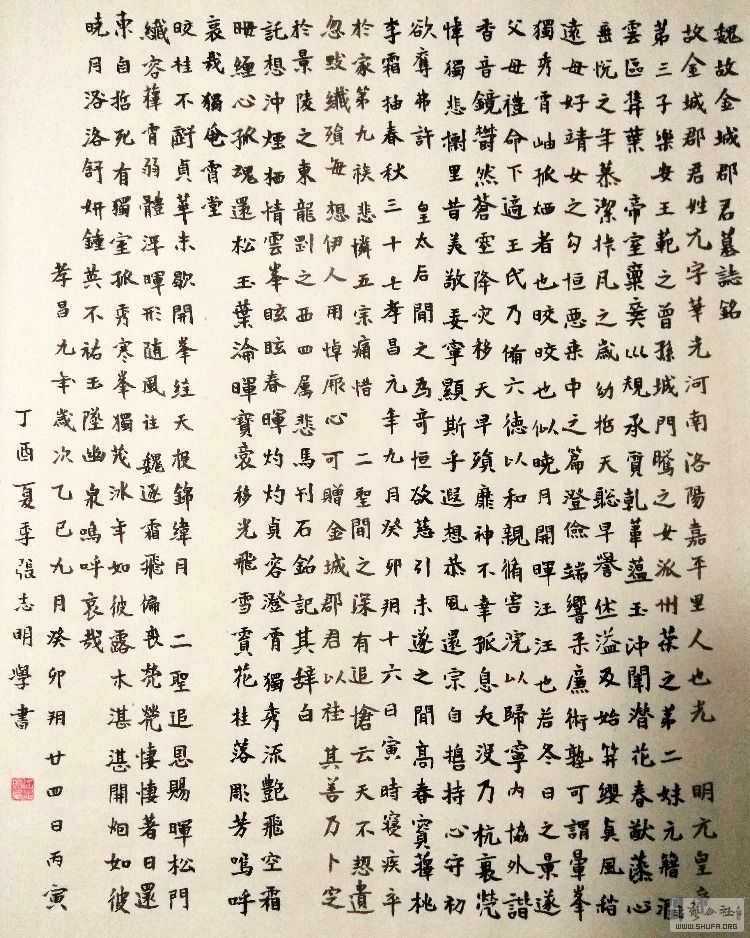 魏故金城郡君墓誌銘
故金城郡君姓元字華光河南洛陽嘉平里人也光 明元皇
弟三子樂安王範之曾孫城門騰之女派州 荗之弟二妹元籍
雲區 葉 帝室稟 以規承賢軋 蘊玉沖閨潛花春猷 心
悅之年慕潔 凡之歲幼 天聡早譽 溢及始笄纓貞風結
遠毋好靖女之勾恒惡來中之篇澄儉端嚮柔廉術 可謂暈峯
獨秀霄岫孤烟者也晈晈也似曉月開暉汪汪也若冬日之景遂
父母禮命下適王氏乃俻六德以和親脩害浣以歸寧內協外諧
香音鏡欝然蒼霊降灾移天早殞靡神不幸孤息夭没乃杭衰煢
悼獨悲 里昔美敬姜寧顯斯乎遐想恭風還宗自擔持心守初
欲奪弗許 皇太后聞之為奇恒欲慈引未遂之間高春實蘀桃
李霜抽春秋三十七孝昌元年九月癸卯朔十六日寅時寢疾卒
於家第九族悲憐五宗痛惜 二聖聞之深有追愴云天不慗遺
忽致殲殞毎想伊人用悼厥心可贈金城郡君以 其善乃卜定
於景陵之東龍 之西四属悲馬刊石銘記其辞曰
託想沖煙栖情雲峯眩眩春暉灼灼貞容澄霄獨秀流艷飛空霜
纏心孤瑰還松玉葉淪暉寶衰移光飛雪賓花桂落彫芳嗚呼
哀哉獨奄霄堂
晈桂不 貞華未歇開峯 天根錦緯月 二聖追恩賜暉松門
纖容 霄弱體浮暉形随風往魏逐霜飛偏喪煢煢悽悽著日還
東自 死有獨室孤秀寒峯獨茂冰年如彼露木湛湛開炯如彼
曉月浴洛舒妍鍾英不祐玉墜幽泉嗚呼哀哉
孝昌元年歲次乙巳九月癸卯朔廿四日丙寅
丁酉夏季張志明學書
WWW.SHUFA.ORG